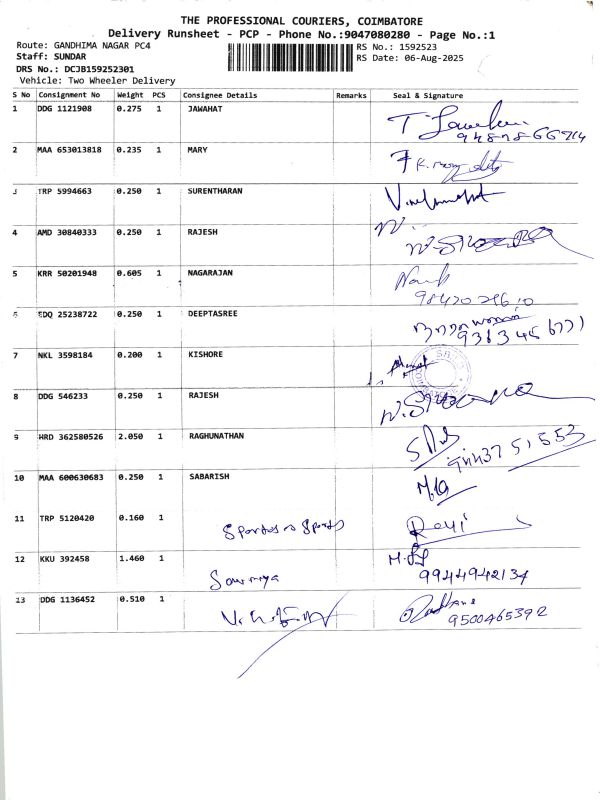 THE PROFESSIONAL COURIERS, COIMBATORE
Delivery Runsheet - PCP - Phone No.:9047080280 - Page No.:1
Route: GANDHIMA NAGAR PC4
RS No.: 1592523
Staff: SUNDAR
RS Date: 06-Aug-2025
DRS No.: DCJB159252301
Vehicle: Two Wheeler Delivery
S No Consignment No Weight PCS Consignee Details Remarks Seal & Signature
1 DDG 1121908 0.275 1 JAWAHAT
2 MAA 653013818 0.235 1 MARY
3 TRP 5994663 0.250 1 SURENTHARAN
4 AMD 30840333 0.250 1 RAJESH
5 KRR 50201948 0.605 1 NAGARAJAN
6 EDQ 25238722 0.250 1 DEEPTASREE
7 NKL 3598184 0.200 1 KISHORE
8 DDG 546233 0.250 1 RAJESH
9 HRD 362580526 2.050 1 RAGHUNATHAN
10 MAA 600630683 0.250 1 SABARISH
11 TRP 5120420 0.160 1 Ravi
12 KKU 392458 1.460 1 Sowmiya
9944942134
13 DDG 1136452 0.510 1
9500465392